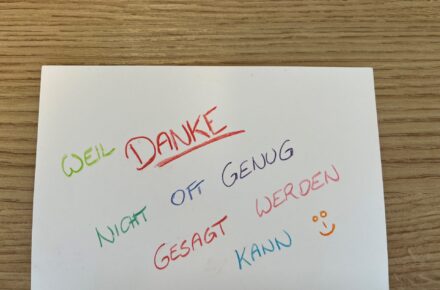 WEIL DANKE
NICHT OFT GENUG
GESAGT WERDEN
KANN